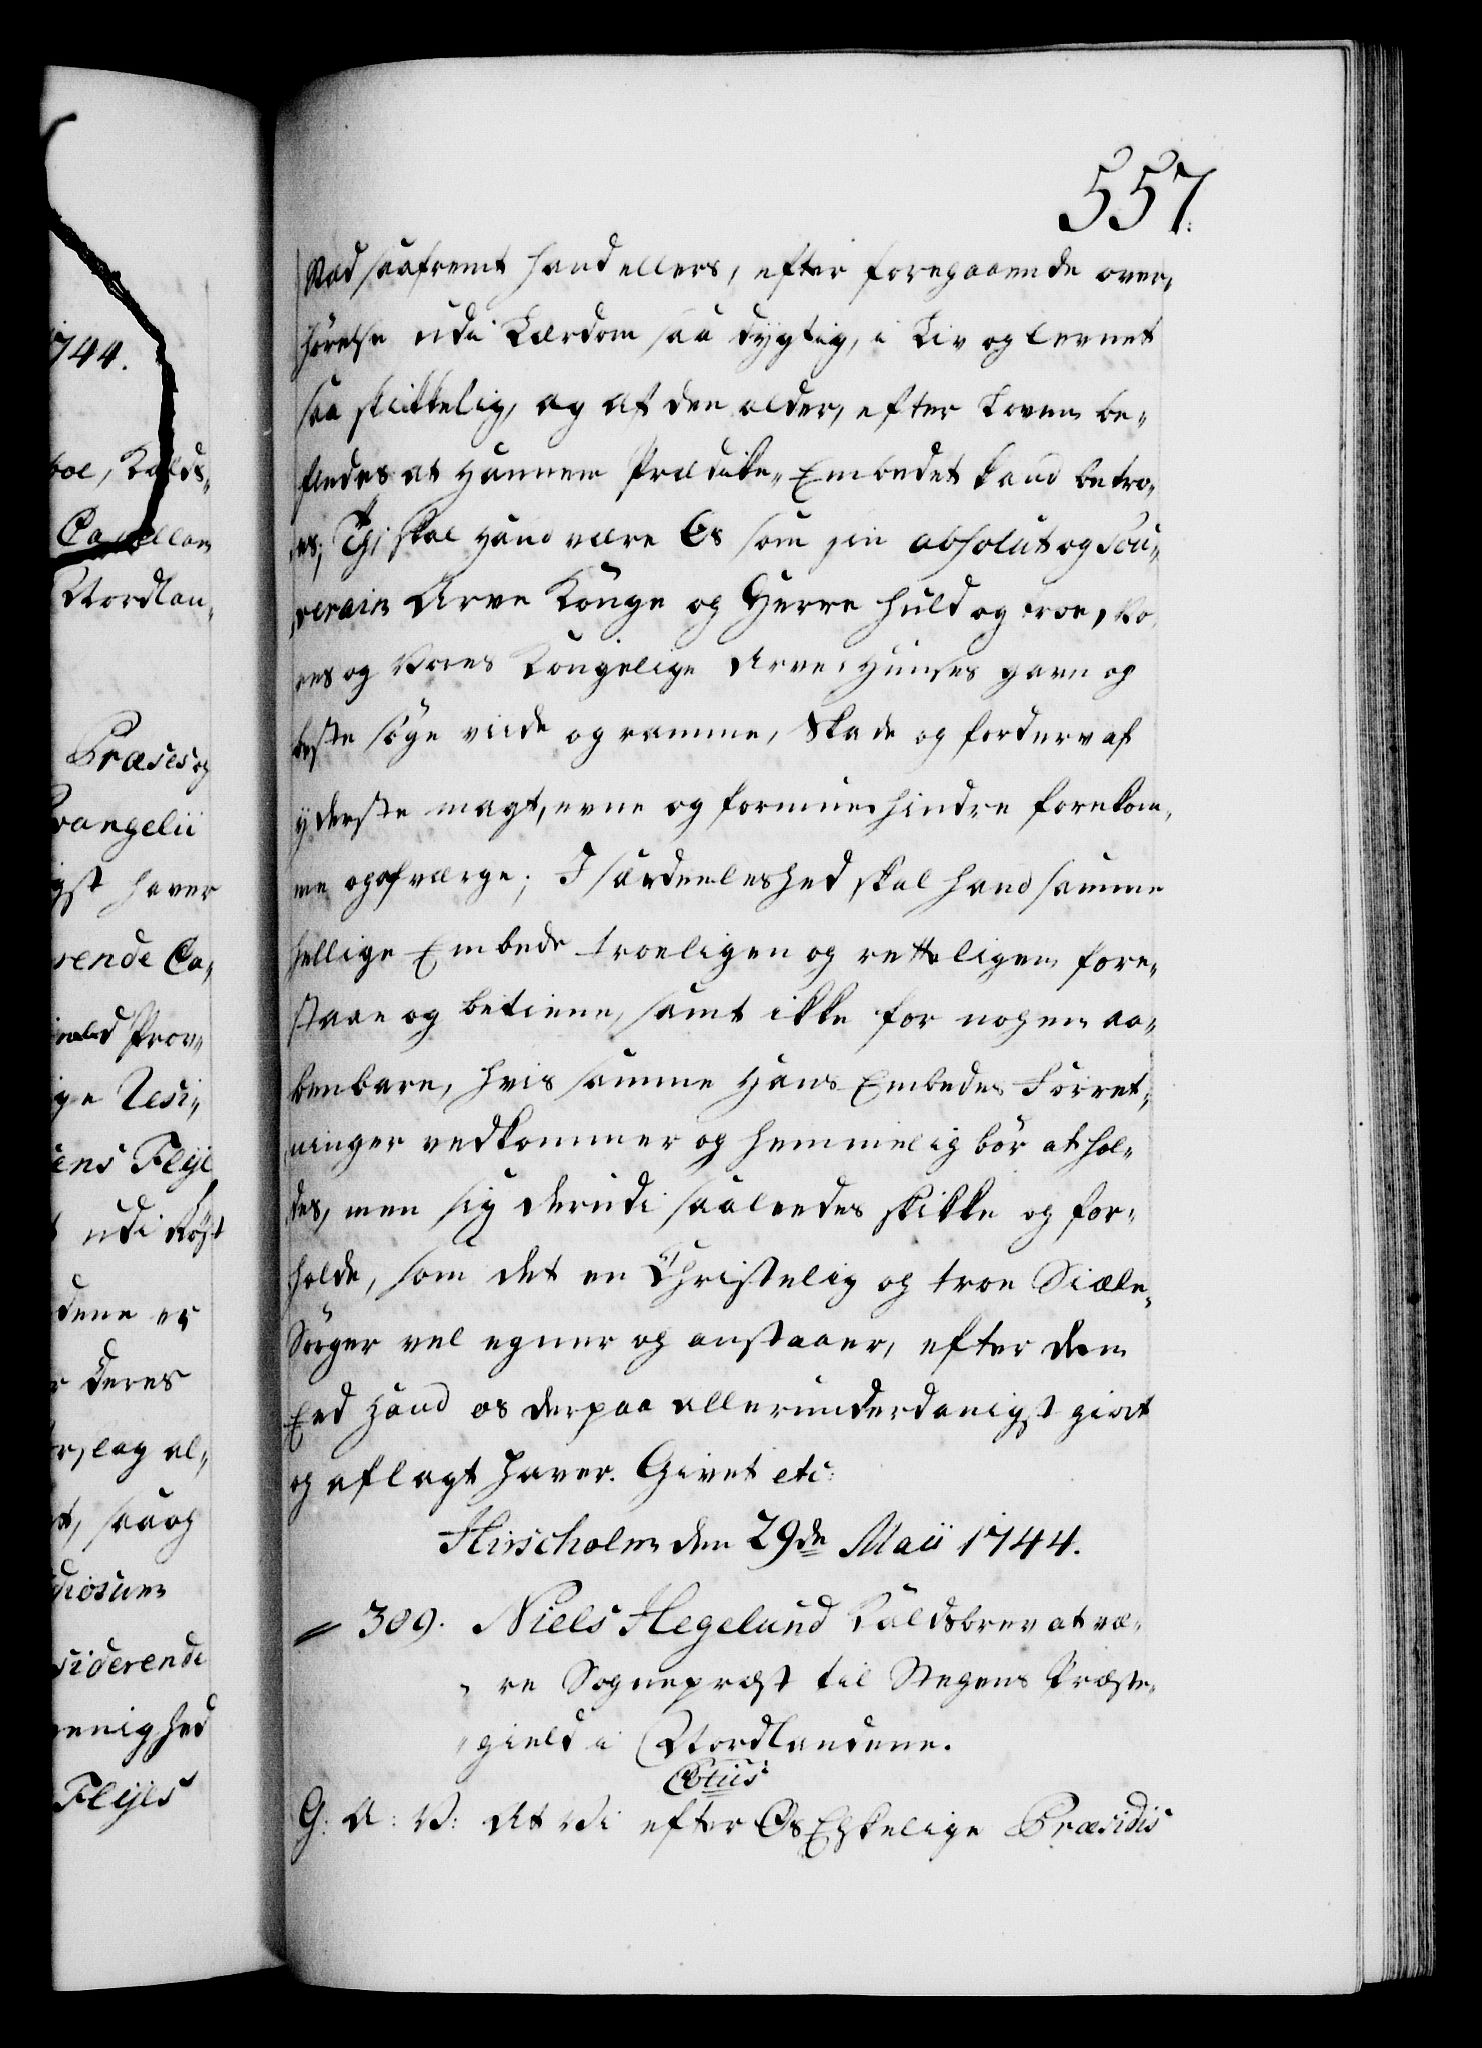 557.
Stad saafremt hand ellers, efter foregaaende over-
hörelse udi Lærdom saa dygtig, i Liv og levnet
saa skikkelig, og af den alder, efter Loven be-
findes at hannem Prædike-Embedet kand betro-
es; Thi skal hand være Os som sin absolut og Sou-
verain Arve Konge og Herre huld og troe, Vo-
res og Vores Kongelige Arve-Huuses gavn og
beste söge viide og ramme, Skade og forderv af
yderste magt, evne og formue hindre forekom-
me og afværge; I særdeeleshed skal hand samme
hellige Embede troeligen og retteligen fore-
staae og betiene, samt ikke for nogen aa-
benbare, hvis samme Hans Embedes Forret-
ninger vedkommer og hemmelig bör at hol-
des, men sig derudi saaleedes skikke og for-
holde, som det en Christelig og troe Siæle-
Sörger vel egner og anstaaer, efter den
Eed Hand os derpaa allerunderdanigst giort
og aflagt haver. Givet etc:
Hirscholm den 29de Maii 1744.
389. Niels Hegelund Kaldsbrev at væ-
re Sognepræst til Stegens Præste-
gield i Nordlandene.
G: A: V: At Vi efter Os Elskelige Præsidis
1744.
Kalds-
Capellan
Nordlan-
Præses og
Evangelii
haver
Ca-
Prov-
Resi-
Fleye
udi Röst
dene er
deres
al-
saa og
siderende
Fleyes